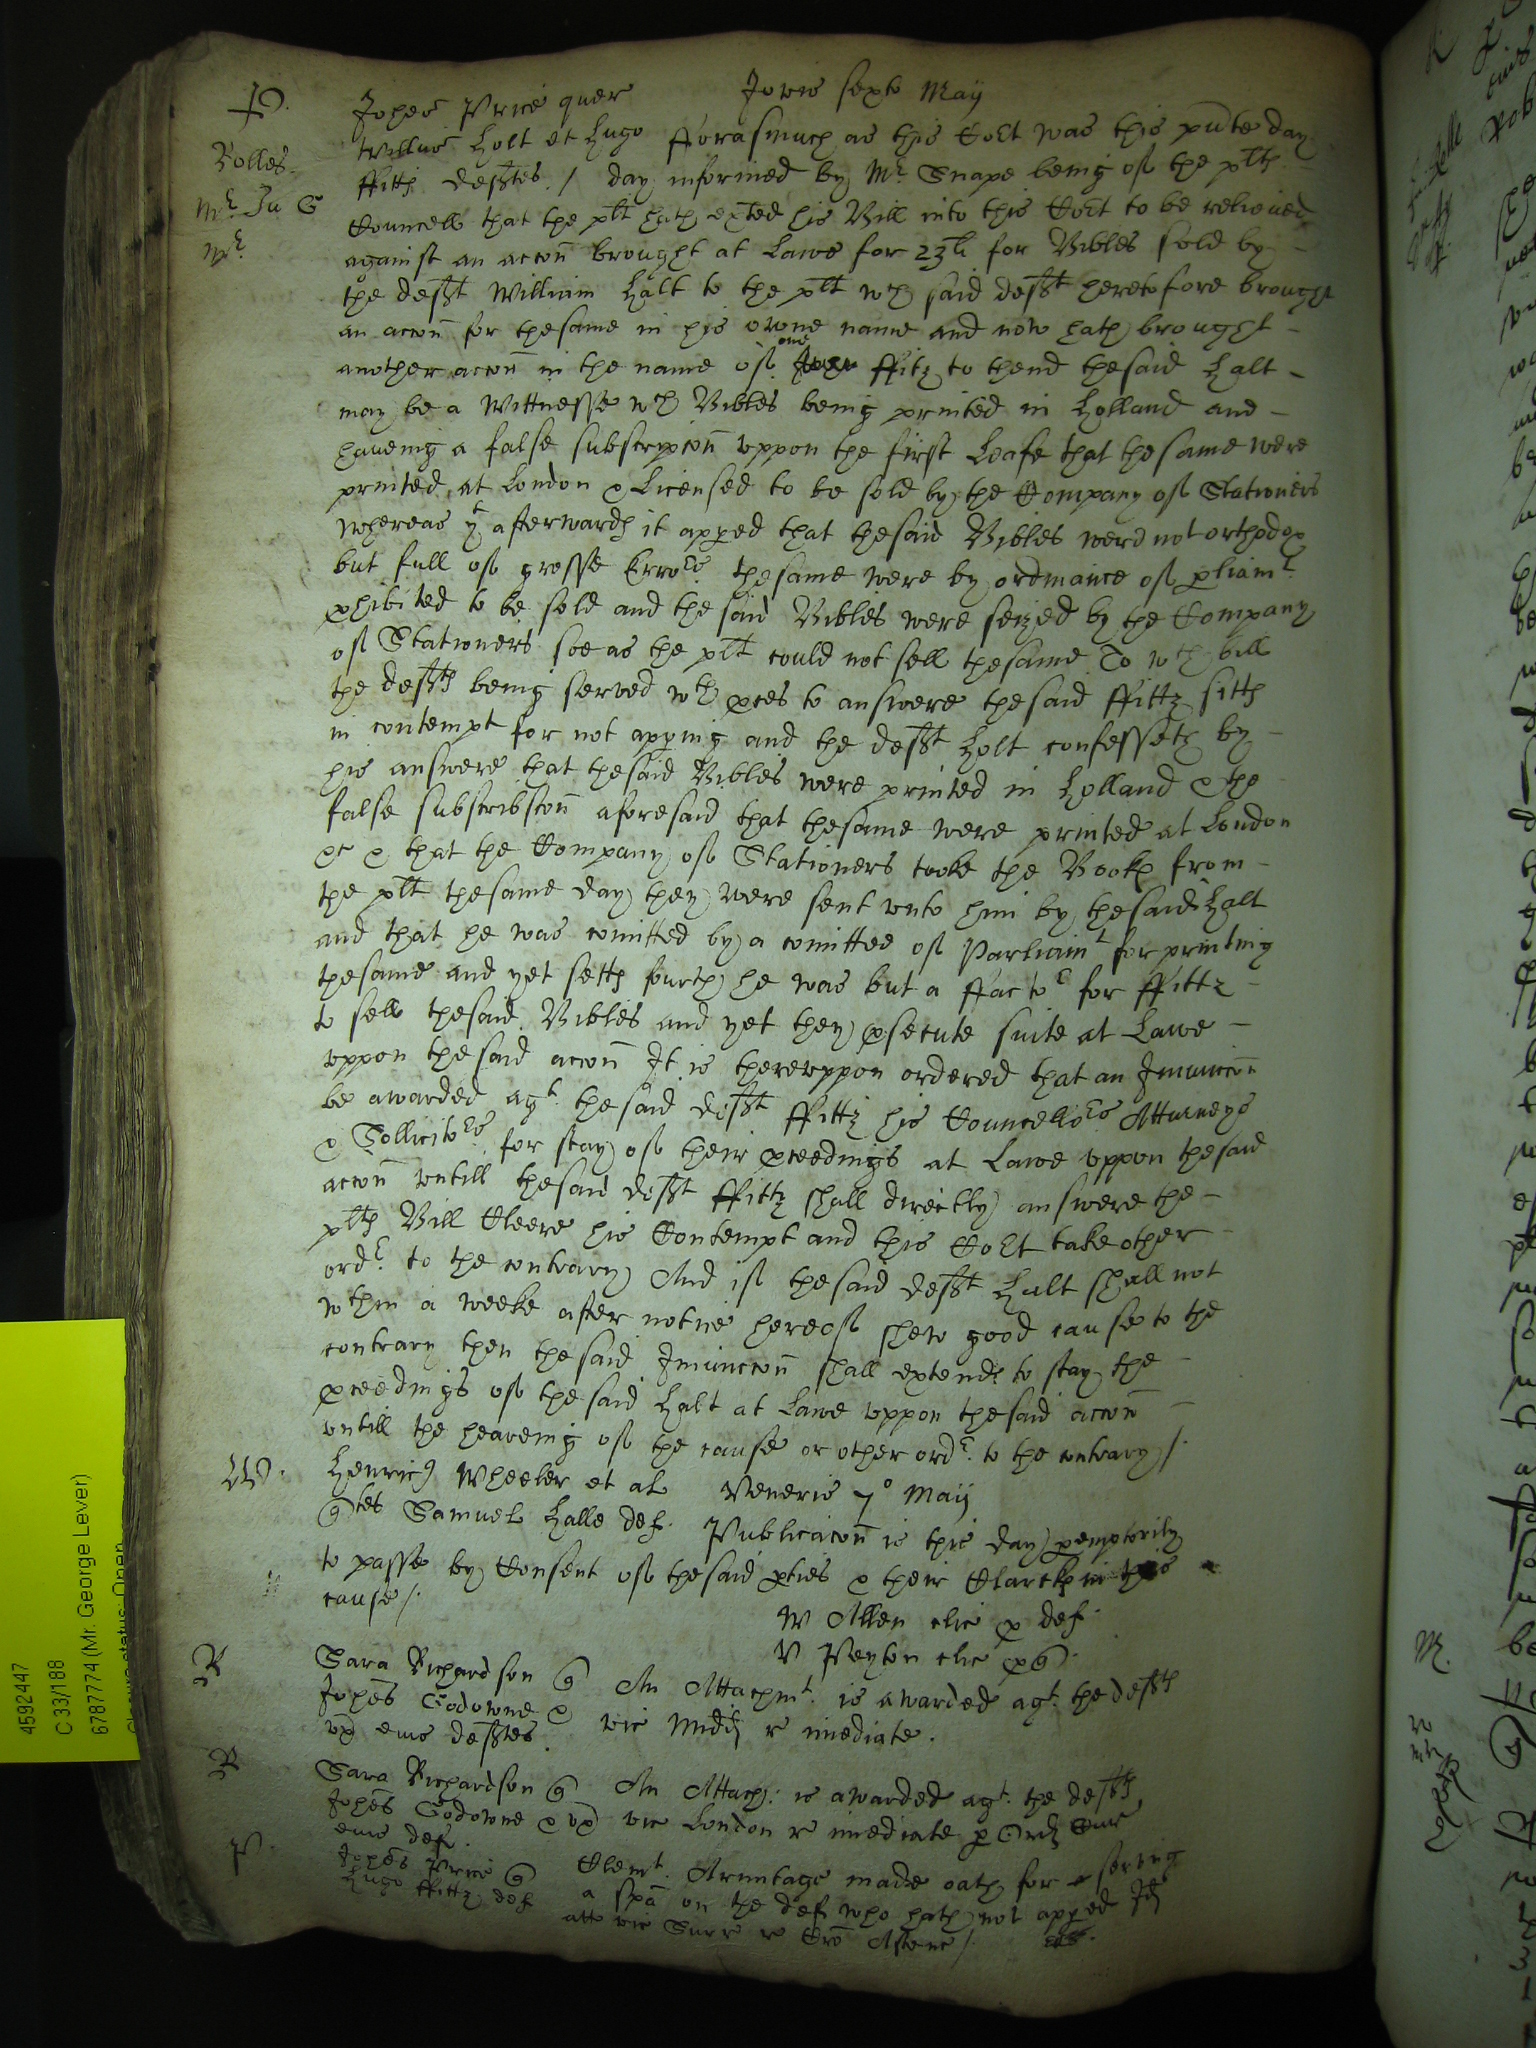 P.
Rolles
Mr Ju G
Mr
Johes Price quer Jovis sexto Maij
Willus Holt et Hugo fforasmuch as this Cort was this pnte day
ffitts defdtes / day informed by Mr Snape being of the plts
Councell that the plt hath exted his Bill into this Cort to be relieued
against an accon brought at Lawe for 23li for Bibles sold by
the defdt William Halt to the plt wch said defdt heretofore brought
an accon for thesame in his owne name and now hath brought
another accon in the name of one ffitz to thend thesaid Halt
may be a Wittnesse wch Bibles being printed in Holland and
haueing a false subscripcon vppon the first Leafe that thesame were
printed at London & Licensed to be sold by the Company of Stationers
Whereas yt afterwards it apped that thesaid Bibles were not orthodox
but full of grosse Errors thesame were by ordinance of pliamt
phibited to be sold and the said Bibles were seized by the Company
of Stationers soe as the plt could not sell thesame To wch bill
the defdts being served wth pces to answere thesaid ffittz sitts
in contempt for not apping and the defdt Holt confesseth by
his answere that thesaid Bibles were printed in Holland & the
false subscribscon aforesaid that thesame were printed at London
&c & that the Company of Stationers tooke the Books from
the plt thesame day they were sent vnto him by thesaid Halt
and that he was comitted by a comittee of Parliamt for printing
thesame and yet setts fourth he was but a ffactor for ffittz
to sell thesaid Bibles and yet they psecute suite at Lawe
vppon thesaid accon It is therevppon ordered that an Iniunccon
be awarded agt. thesaid defdt ffittz his Councellors Atturneys
& Sollicitors for stay of their pceedings at Lawe vppon thesaid
accon vntill thesaid defdt ffittz shall directly answere the
plts Bill Cleere his Contempt and this Cort take other
ordr to the contrary And if thesaid defdt Halt shall not
wthin a weeke after notice hereof shew good cause to the
contrary then thesaid Iniunccon shall extend to stay the
pceedings of thesaid Halt at Lawe vppon thesaid accon
vntill the heareing of the cause or other ordr to the contrary /.
W.
Henricus Wheeler et al Veneris 7o Maij
Qtes Samuel Halle def. Publicacon is this day pemptorily
to passe by Consent of thesaid pties & their Clarcks in this
cause /.
W Allen clic p def.
V Peyton clic p Q.
R
Sara Richardson Q An Attachmt. is awarded agt. the defdts
Johes Godowne & vic Midds r imediate.
vx eius defdtes.
R
Sara Richardson Q An Attach: is awarded agt. the defdts
Johes Godowne & vx vic London r imediate p Ord Cur
eius def.
P.
Johes Price Q Clemt. Armitage made oath for serving
Hugo ffittz def a spa on the def who hath not apped Ids
att vic Surr r Cro Ascenc /
4592447
C 33/188
6787774 (Mr. George Lever)
Closure status: Open
M.